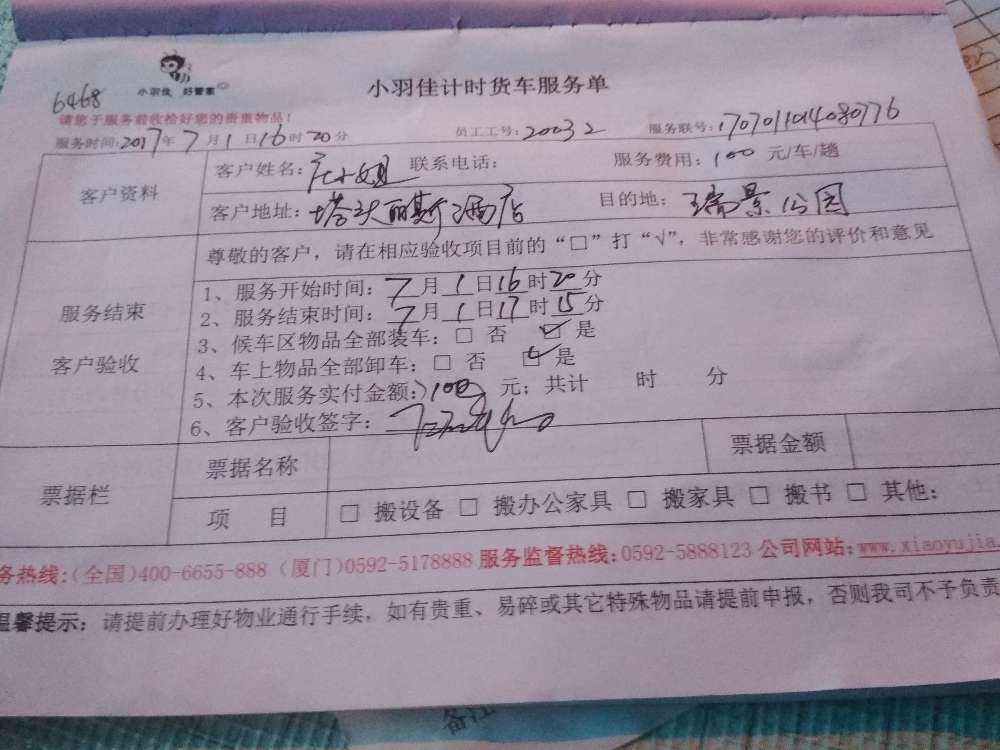 小羽佳计时货车服务单
小羽佳 好管家
6468
请您于服务前收拾好您的贵重物品!
服务时间:2017年7月1日16时20分 员工工号:20032 服务联号:1707011014080776
客户资料
客户姓名:庄小姐 联系电话: 服务费用:100元/车/趟
客户地址:塔头丽斯酒店 目的地:瑞景公园
尊敬的客户，请在相应验收项目前的“□”打“√”，非常感谢您的评价和意见
服务结束
客户验收
1、服务开始时间:7月1日16时20分
2、服务结束时间:7月1日17时15分
3、候车区物品全部装车:□ 否 ☑ 是
4、车上物品全部卸车:□ 否 ☑ 是
5、本次服务实付金额:100元；共计 时 分
6、客户验收签字:
票据栏
票据名称 票据金额
项 目 □ 搬设备 □ 搬办公家具 □ 搬家具 □ 搬书 □ 其他:
务热线:(全国)400-6655-888 (厦门)0592-5178888 服务监督热线:0592-5888123 公司网站:www.xiaoyujia.
温馨提示:请提前办理好物业通行手续，如有贵重、易碎或其它特殊物品请提前申报，否则我司不予负责